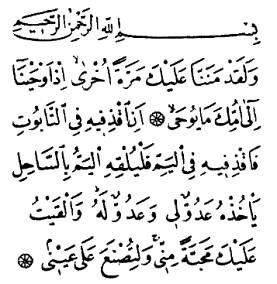 بِسْمِ اللهِ الرَّحْمٰنِ الرَّحِيْمِ
وَلَقَدْ مَنَنَّا عَلَيْكَ مَرَّةً اُخْرٰىۙ اِذْ اَوْحَيْنَٓا
اِلٰٓى اُمِّكَ مَا يُوحٰىۙ ۞ اَنِ اقْذِفِيهِ فِي التَّابُوتِ
فَاقْذِفِيهِ فِي الْيَمِّ فَلْيُلْقِهِ الْيَمُّ بِالسَّاحِلِ
يَأْخُذْهُ عَدُوٌّ لِي وَعَدُوٌّ لَهُۜ وَاَلْقَيْتُ
عَلَيْكَ مَحَبَّةً مِنِّيۚ وَلِتُصْنَعَ عَلٰى عَيْنِيۢ ۞